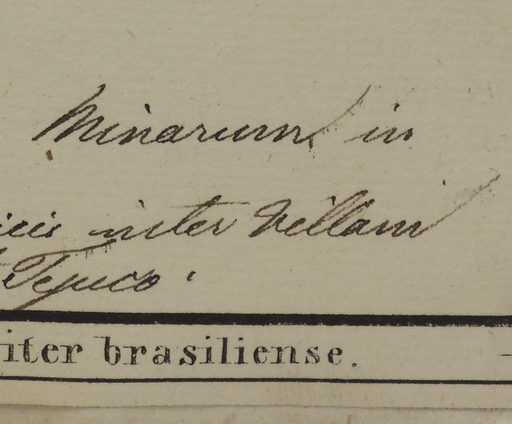 Minarum in
inter Villam
Tejuco.
iter brasiliense.